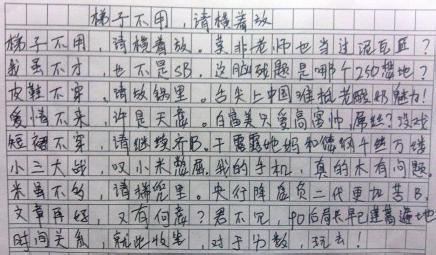 梯子不用，请横着放
梯子不用，请横着放。莫非老师也当过泥瓦匠？
我虽不才，也不是SB，这脑残题是哪个250想地？
皮鞋不穿，请放锅里。舌尖上中国难抵老酸奶魅力！
爱情不来，许是天意。白富美只爱高富帅，屌丝？没戏
短裙不穿，请继续齐B。干露露她妈和你的千丝万缕
小三大战，叹小米憋屈。我的手机，真的木有问题。
米虽不多，请揣兜里。央行降息负二代更加苦B。
文章再好，又有何意？君不见，90后局长早已遍地
时间关系，就此收笔，对于分数，玩去！